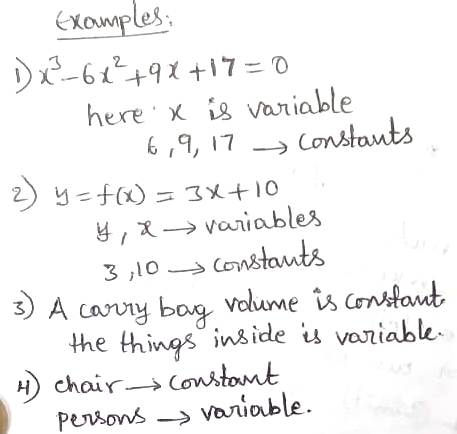 Examples:
1) x³-6x²+9x+17=0
here x is variable
6,9,17 → constants
2) y=f(x) = 3x+10
y, x → variables
3,10 → constants
3) A carry bag volume is constant.
the things inside is variable.
4) chair → constant
persons → variable.